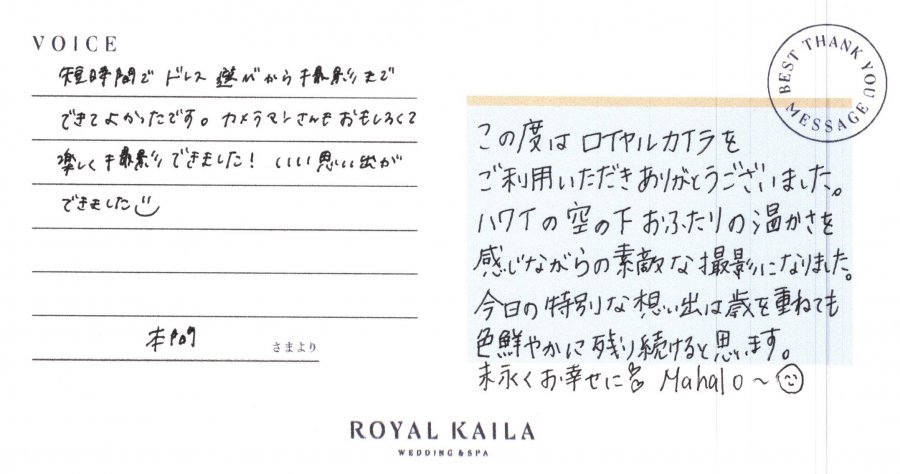 VOICE
短時間で ドレス 選びから 撮影まで
できてよかったです。カメラマンさんもおもしろくて
楽しく撮影できました! いい思い出が
できました
本間
さまより
BEST THANK YOU MESSAGE
この度は ロイヤルカイラを
ご利用いただきありがとうございました。
ハワイの空の下 おふたりの温かさを
感じながらの素敵な撮影になりました。
今日の特別な想い出は歳を重ねても
色鮮やかに残り続けると思います。
末永くお幸せに Mahalo～
ROYAL KAILA
WEDDING & SPA